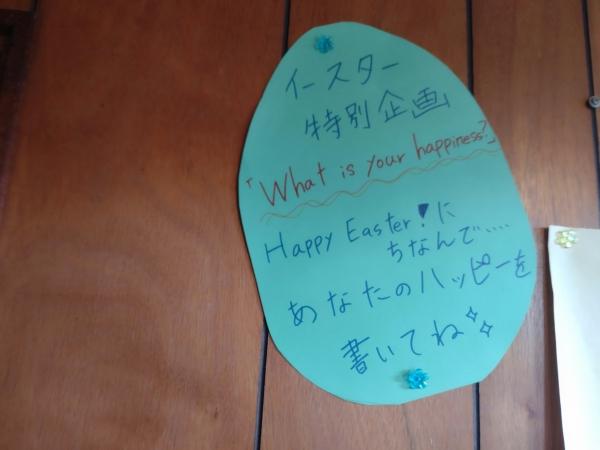 イースター
特別企画
「What is your happiness?」
Happy Easter!に
ちなんで....
あなたのハッピーを
書いてね